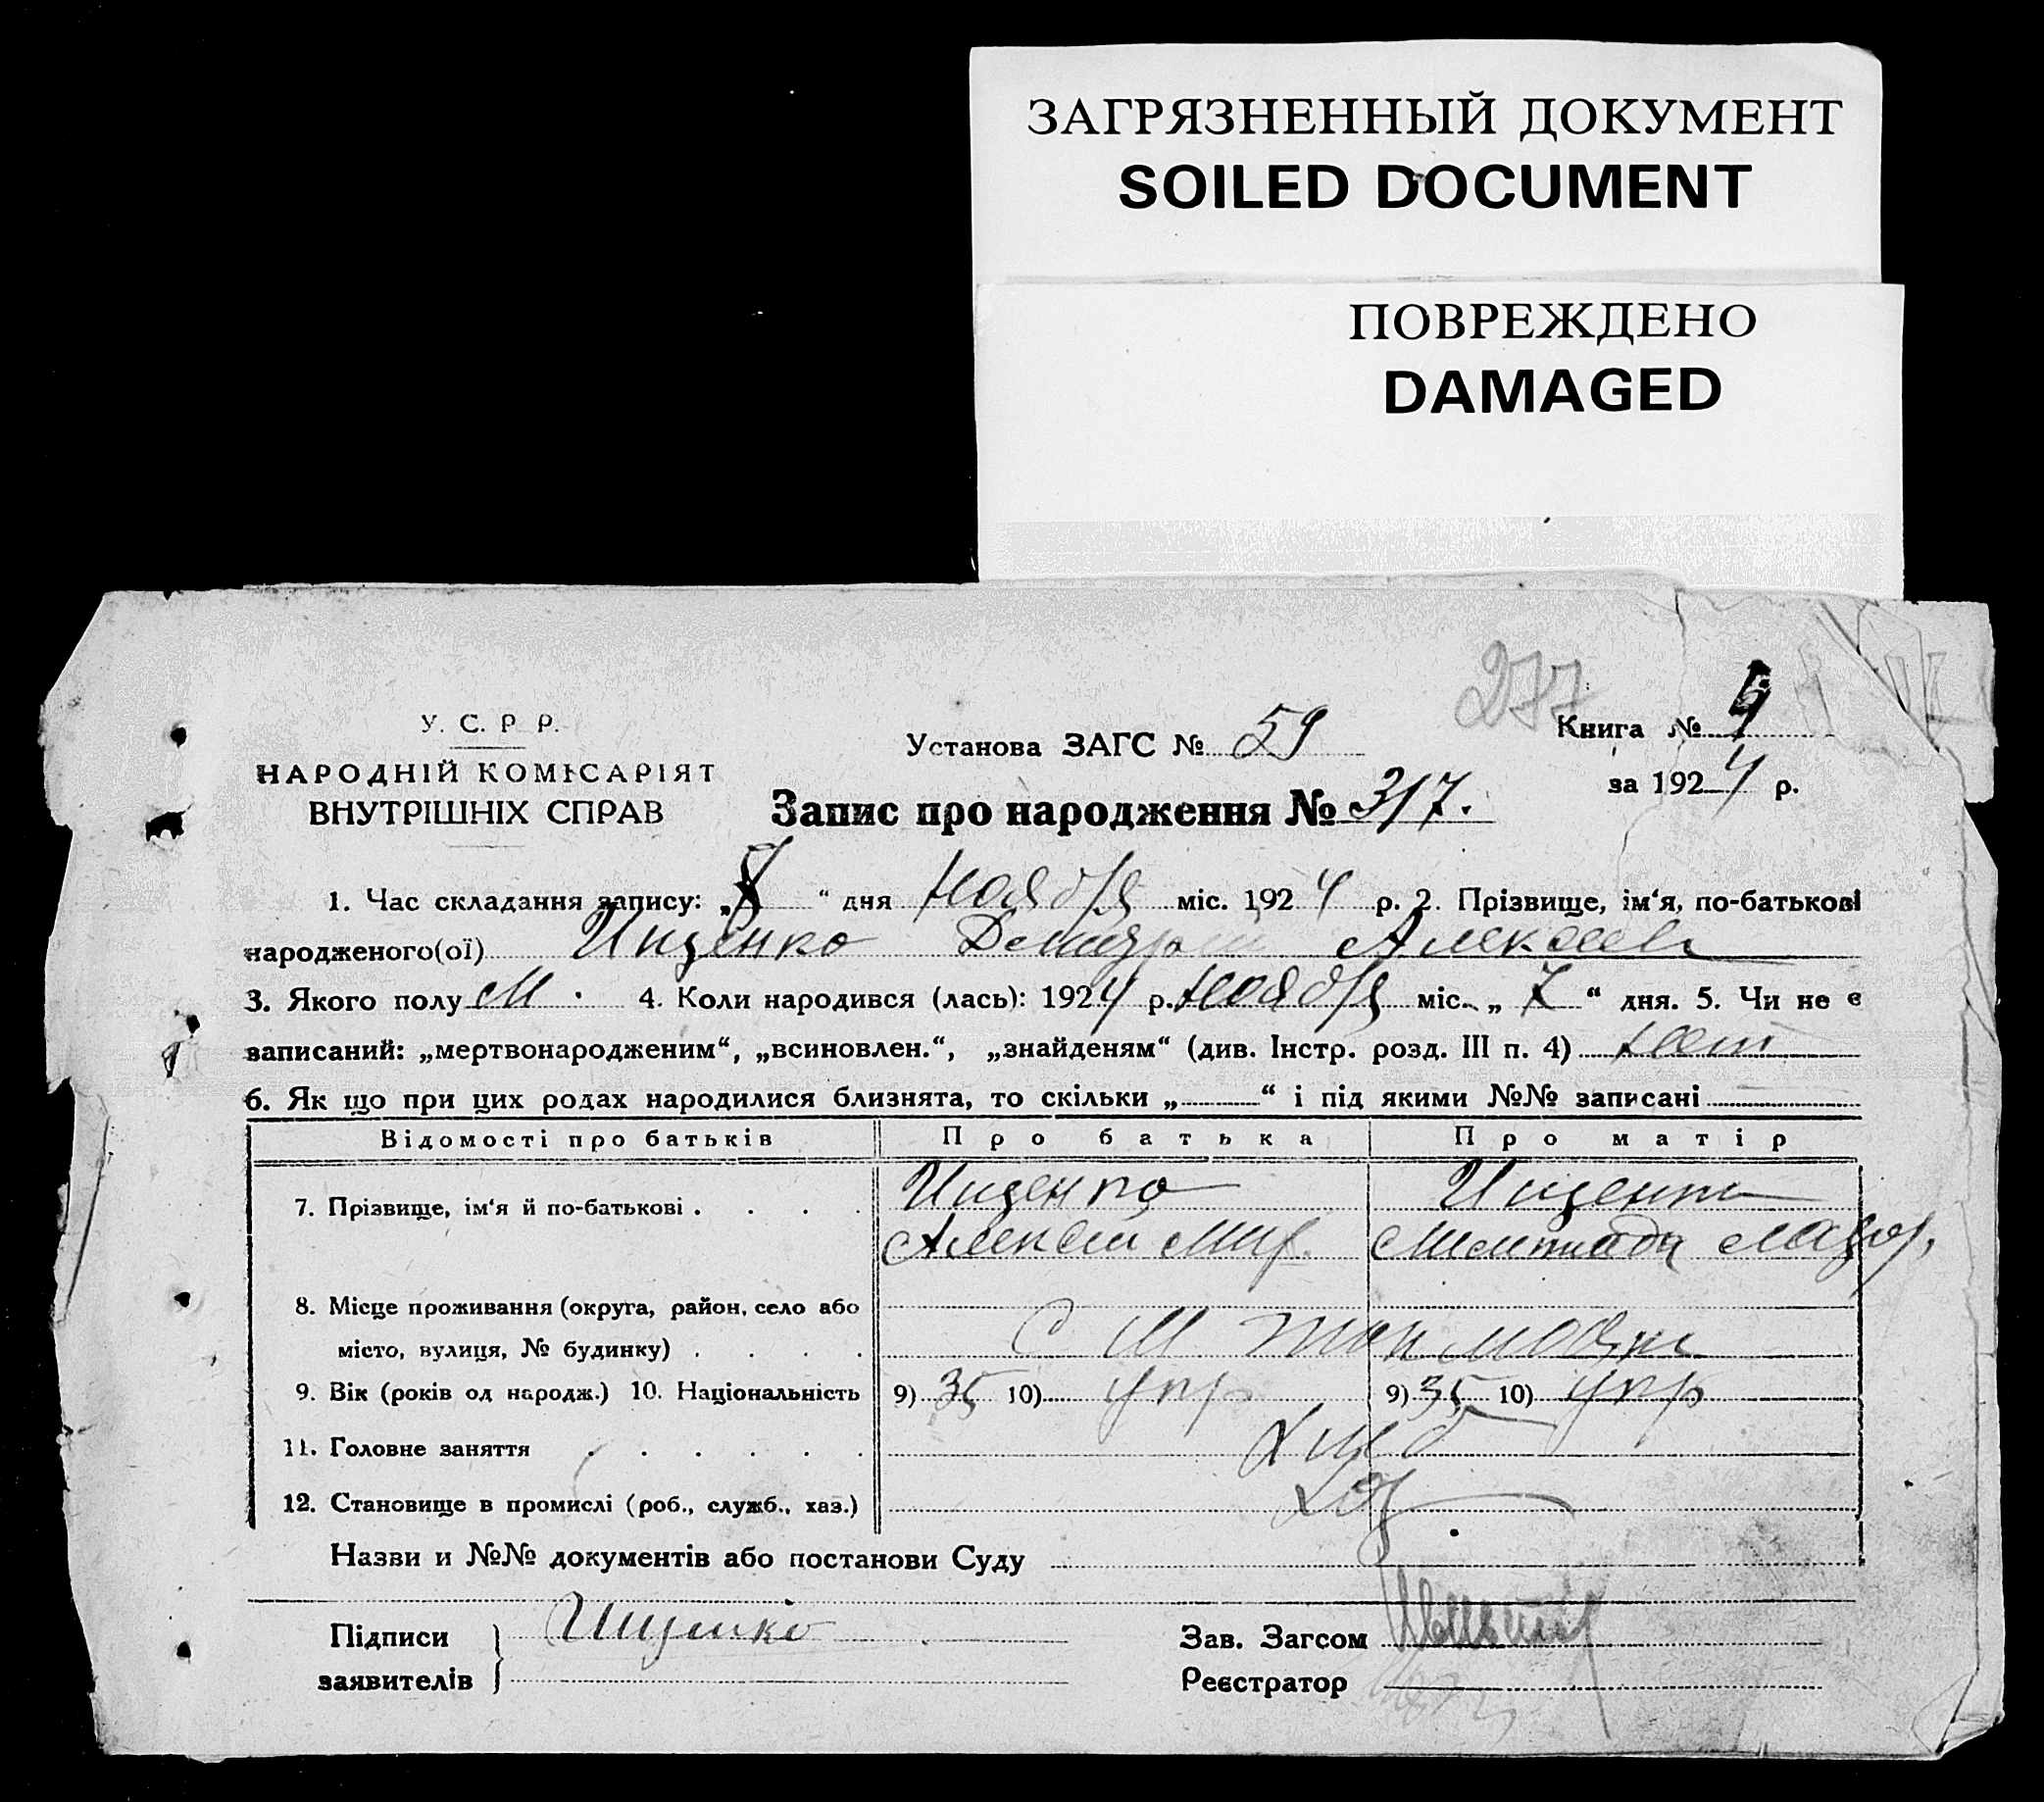 ЗАГРЯЗНЕННЫЙ ДОКУМЕНТ
SOILED DOCUMENT
ПОВРЕЖДЕНО
DAMAGED
277
У. С. Р. Р.
НАРОДНІЙ КОМІСАРІЯТ
ВНУТРІШНІХ СПРАВ
Установа ЗАГС № 59
Книга №
за 1924 р.
Запис про народження № 317.
1. Час складання запису: „ “ дня Ноября міс. 1924 р. 2. Прізвище, ім‘я, по-батькові
народженого(ої) Ищенко Алексеев
3. Якого полу М. 4. Коли народився (лась): 1924 р. Ноября міс. „7“ дня. 5. Чи не є
записаний: „мертвонародженим“, „всиновлен.“, „знайденям“ (див. Інстр. розд. III п. 4) нет
6. Як що при цих родах народилися близнята, то скільки „ “ і під якими №№ записані
Відомості про батьків Про батька Про матір
7. Прізвище, ім‘я й по-батькові . . . . Ищенко Ищенко
Алексей
8. Місце проживання (округа, район, село або
місто, вулиця, № будинку) . . . .
9. Вік (років од народж.) 10. Національність 9) 35 10) укр 9) 35 10) укр
11. Головне заняття . . . . . Хлеб
12. Становище в промислі (роб., служб., хаз.) Хоз
Назви и №№ документів або постанови Суду
Підписи
заявителів
Ищенко
Зав. Загсом
Реєстратор